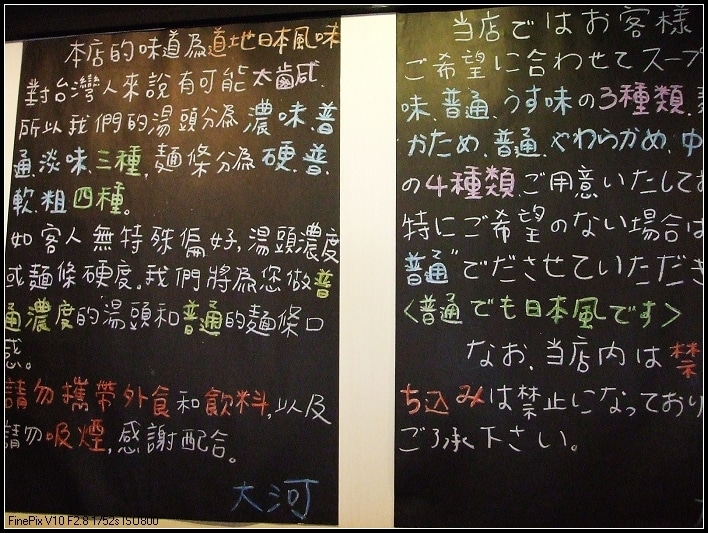 本店的味道為道地日本風味
對台灣人來說有可能太鹹感、
所以我們的湯頭分為濃味、普
通、淡味、三種，麵條分為硬、普、
軟、粗四種。
如客人無特殊偏好，湯頭濃度
或麵條硬度。我們將為您做普
通濃度的湯頭和普通的麵條口
感。
請勿攜帶外食和飲料，以及
請勿吸煙，感謝配合。
大河
当店ではお客様
ご希望に合わせてスープ
味、普通、うす味の3種類、
かため、普通、やわらかめ、中
の4種類、ご用意いたしてお
特にご希望のない場合は
普通"でださせていただき
<普通でも日本風です>
なお、当店内は禁
ち込みは禁止になっており
ご了承下さい。
FinePix V10 F2.8 1/52s ISO800